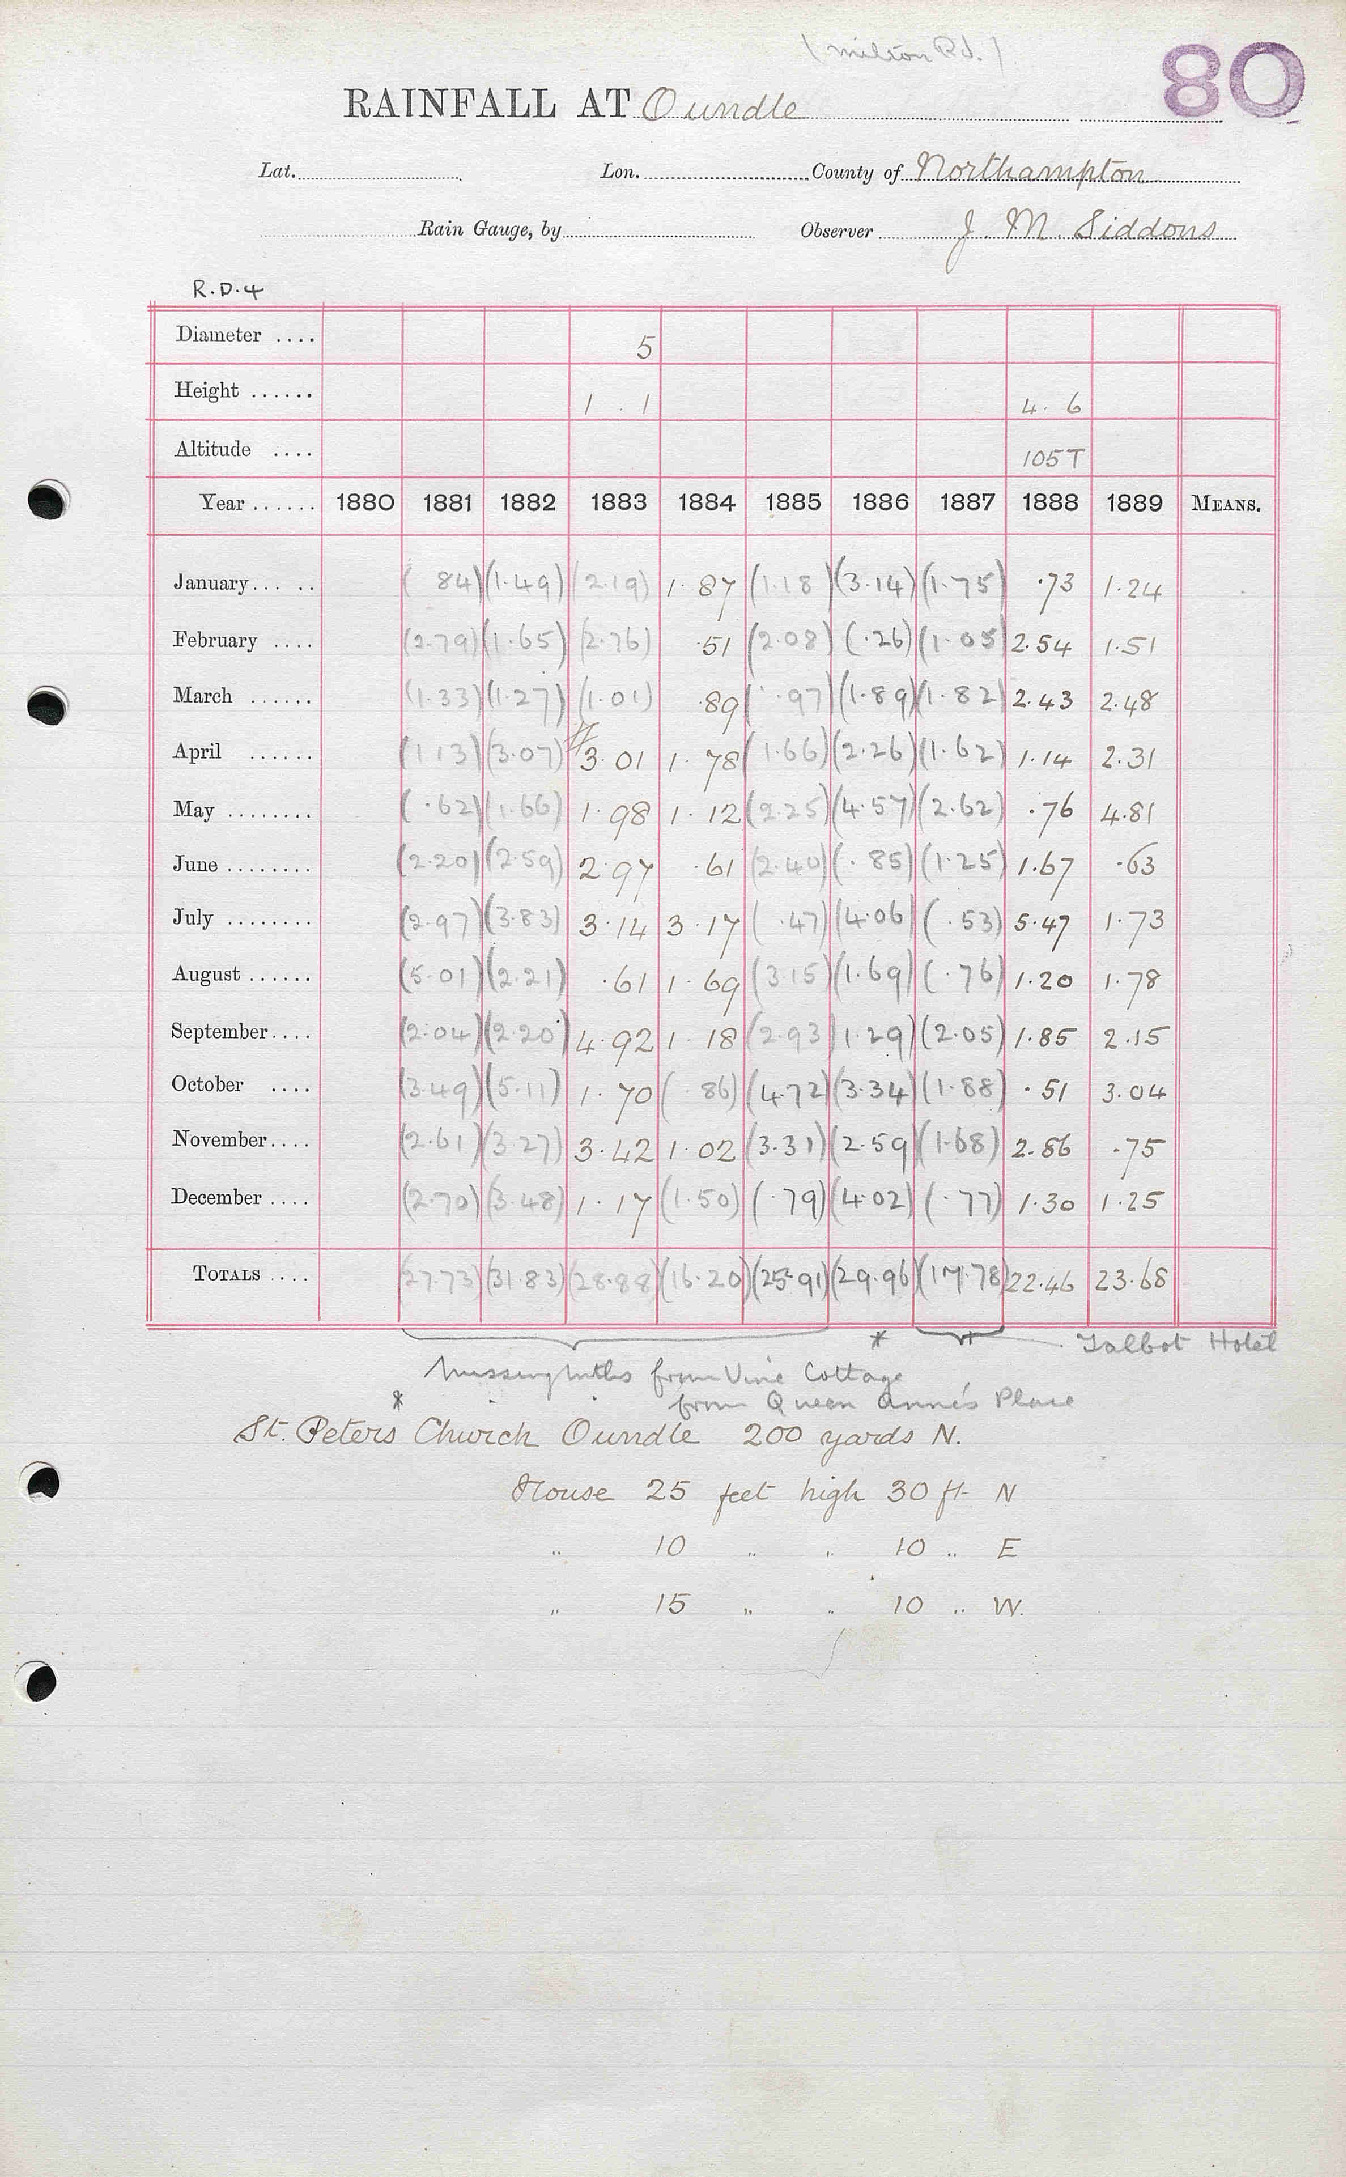 (Milton Rd.)
80
RAINFALL AT Oundle
Lat. Lon. County of Northampton
Rain Gauge, by Observer J. M. Siddons
R.D.4
Diameter .... 5
Height ...... 1 . 1 4. 6
Altitude .... 105T
Year ...... 1880 1881 1882 1883 1884 1885 1886 1887 1888 1889 MEANS.
January... .. ( 84) (1.49) (2.19) 1.87 (1.18) (3.14) (1.75) .73 1.24
February .... (2.79) (1.65) (2.76) .51 (2.08) (.26) (1.05) 2.54 1.51
March ...... (1.33) (1.27) (1.01) .89 (.97) (1.89) (1.82) 2.43 2.48
April ...... (1.13) (3.07) 3.01 1.78 (1.66) (2.26) (1.62) 1.14 2.31
May ........ (.62) (1.66) 1.98 1.12 (2.25) (4.57) (2.62) .76 4.81
June ........ (2.20) (2.59) 2.97 .61 (2.40) (.85) (1.25) 1.67 .63
July ........ (2.97) (3.83) 3.14 3.17 (.47) (4.06) (.53) 5.47 1.73
August ...... (5.01) (2.21) .61 1.69 (3.15) (1.69) (.76) 1.20 1.78
September.... (2.04) (2.20) 4.92 1.18 (2.93) 1.29) (2.05) 1.85 2.15
October .... (3.49) (5.11) 1.70 (86) (4.72) (3.34) (1.88) .51 3.04
November.... (2.61) (3.27) 3.42 1.02 (3.31) (2.59) (1.68) 2.86 .75
December .... (2.70) (3.48) 1.17 (1.50) (.79) (4.02) (.77) 1.30 1.25
TOTALS .... (27.73) (31.83) (28.88) (16.20) (25.91) (29.96) (17.78) 22.46 23.68
* Talbot Hotel
Missing mths from Vine Cottage
* from Queen Anne's Place
St. Peters Church Oundle 200 yards N.
House 25 feet high 30 ft N
" 10 " " 10 " E
" 15 " " 10 " W.